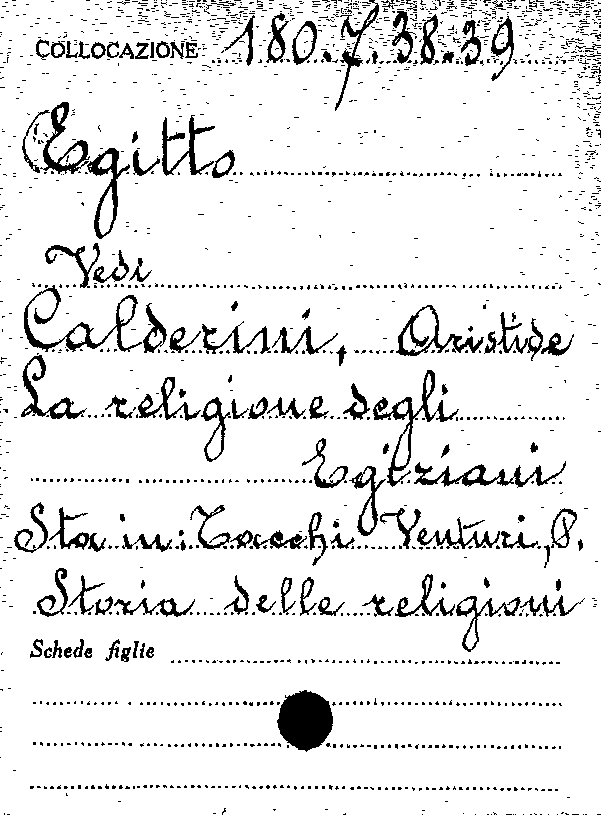 COLLOCAZIONE 180.7.38.39
Egitto
Vedi
Calderini, Aristide
La religione degli
Egiziani
Sta in: Tacchi Venturi, P.
Storia delle religioni
Schede figlie